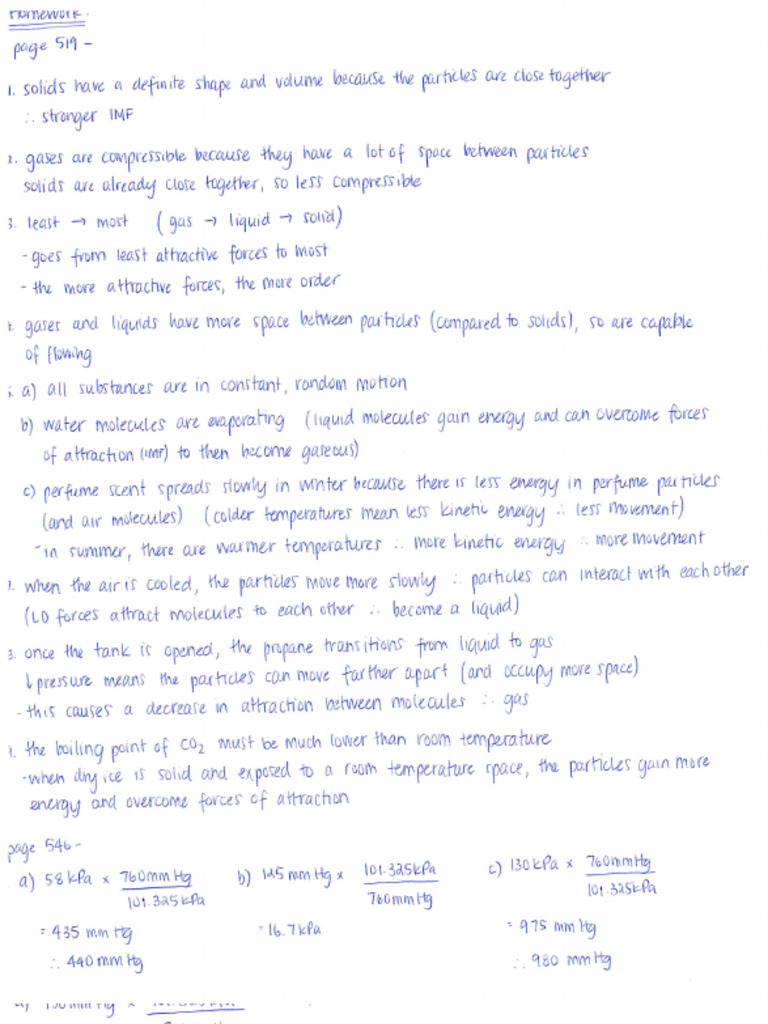 Homework.
page 519 -
1. solids have a definite shape and volume because the particles are close together
∴ stronger IMF
2. gases are compressible because they have a lot of space between particles
solids are already close together, so less compressible
3. least → most (gas → liquid → solid)
- goes from least attractive forces to most
- the more attractive forces, the more order
gases and liquids have more space between particles (compared to solids), so are capable
of flowing
a) all substances are in constant, random motion
b) water molecules are evaporating (liquid molecules gain energy and can overcome forces
of attraction (IMF) to then become gaseous)
c) perfume scent spreads slowly in winter because there is less energy in perfume particles
(and air molecules) (colder temperatures mean less kinetic energy ∴ less movement)
- in summer, there are warmer temperatures ∴ more kinetic energy ∴ more movement
when the air is cooled, the particles move more slowly ∴ particles can interact with each other
(LD forces attract molecules to each other ∴ become a liquid)
3. once the tank is opened, the propane transitions from liquid to gas
↓ pressure means the particles can move farther apart (and occupy more space)
- this causes a decrease in attraction between molecules ∴ gas
the boiling point of CO2 must be much lower than room temperature
- when dry ice is solid and exposed to a room temperature space, the particles gain more
energy and overcome forces of attraction
page 546 -
a) 58 kPa × 760 mm Hg / 101.325 kPa
= 435 mm Hg
∴ 440 mm Hg
b) 125 mm Hg × 101.325 kPa / 760 mm Hg
= 16.7 kPa
c) 130 kPa × 760 mm Hg / 101.325 kPa
= 975 mm Hg
∴ 980 mm Hg